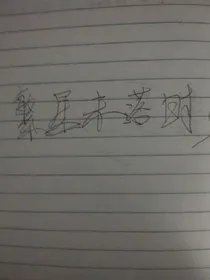 繁星未落时